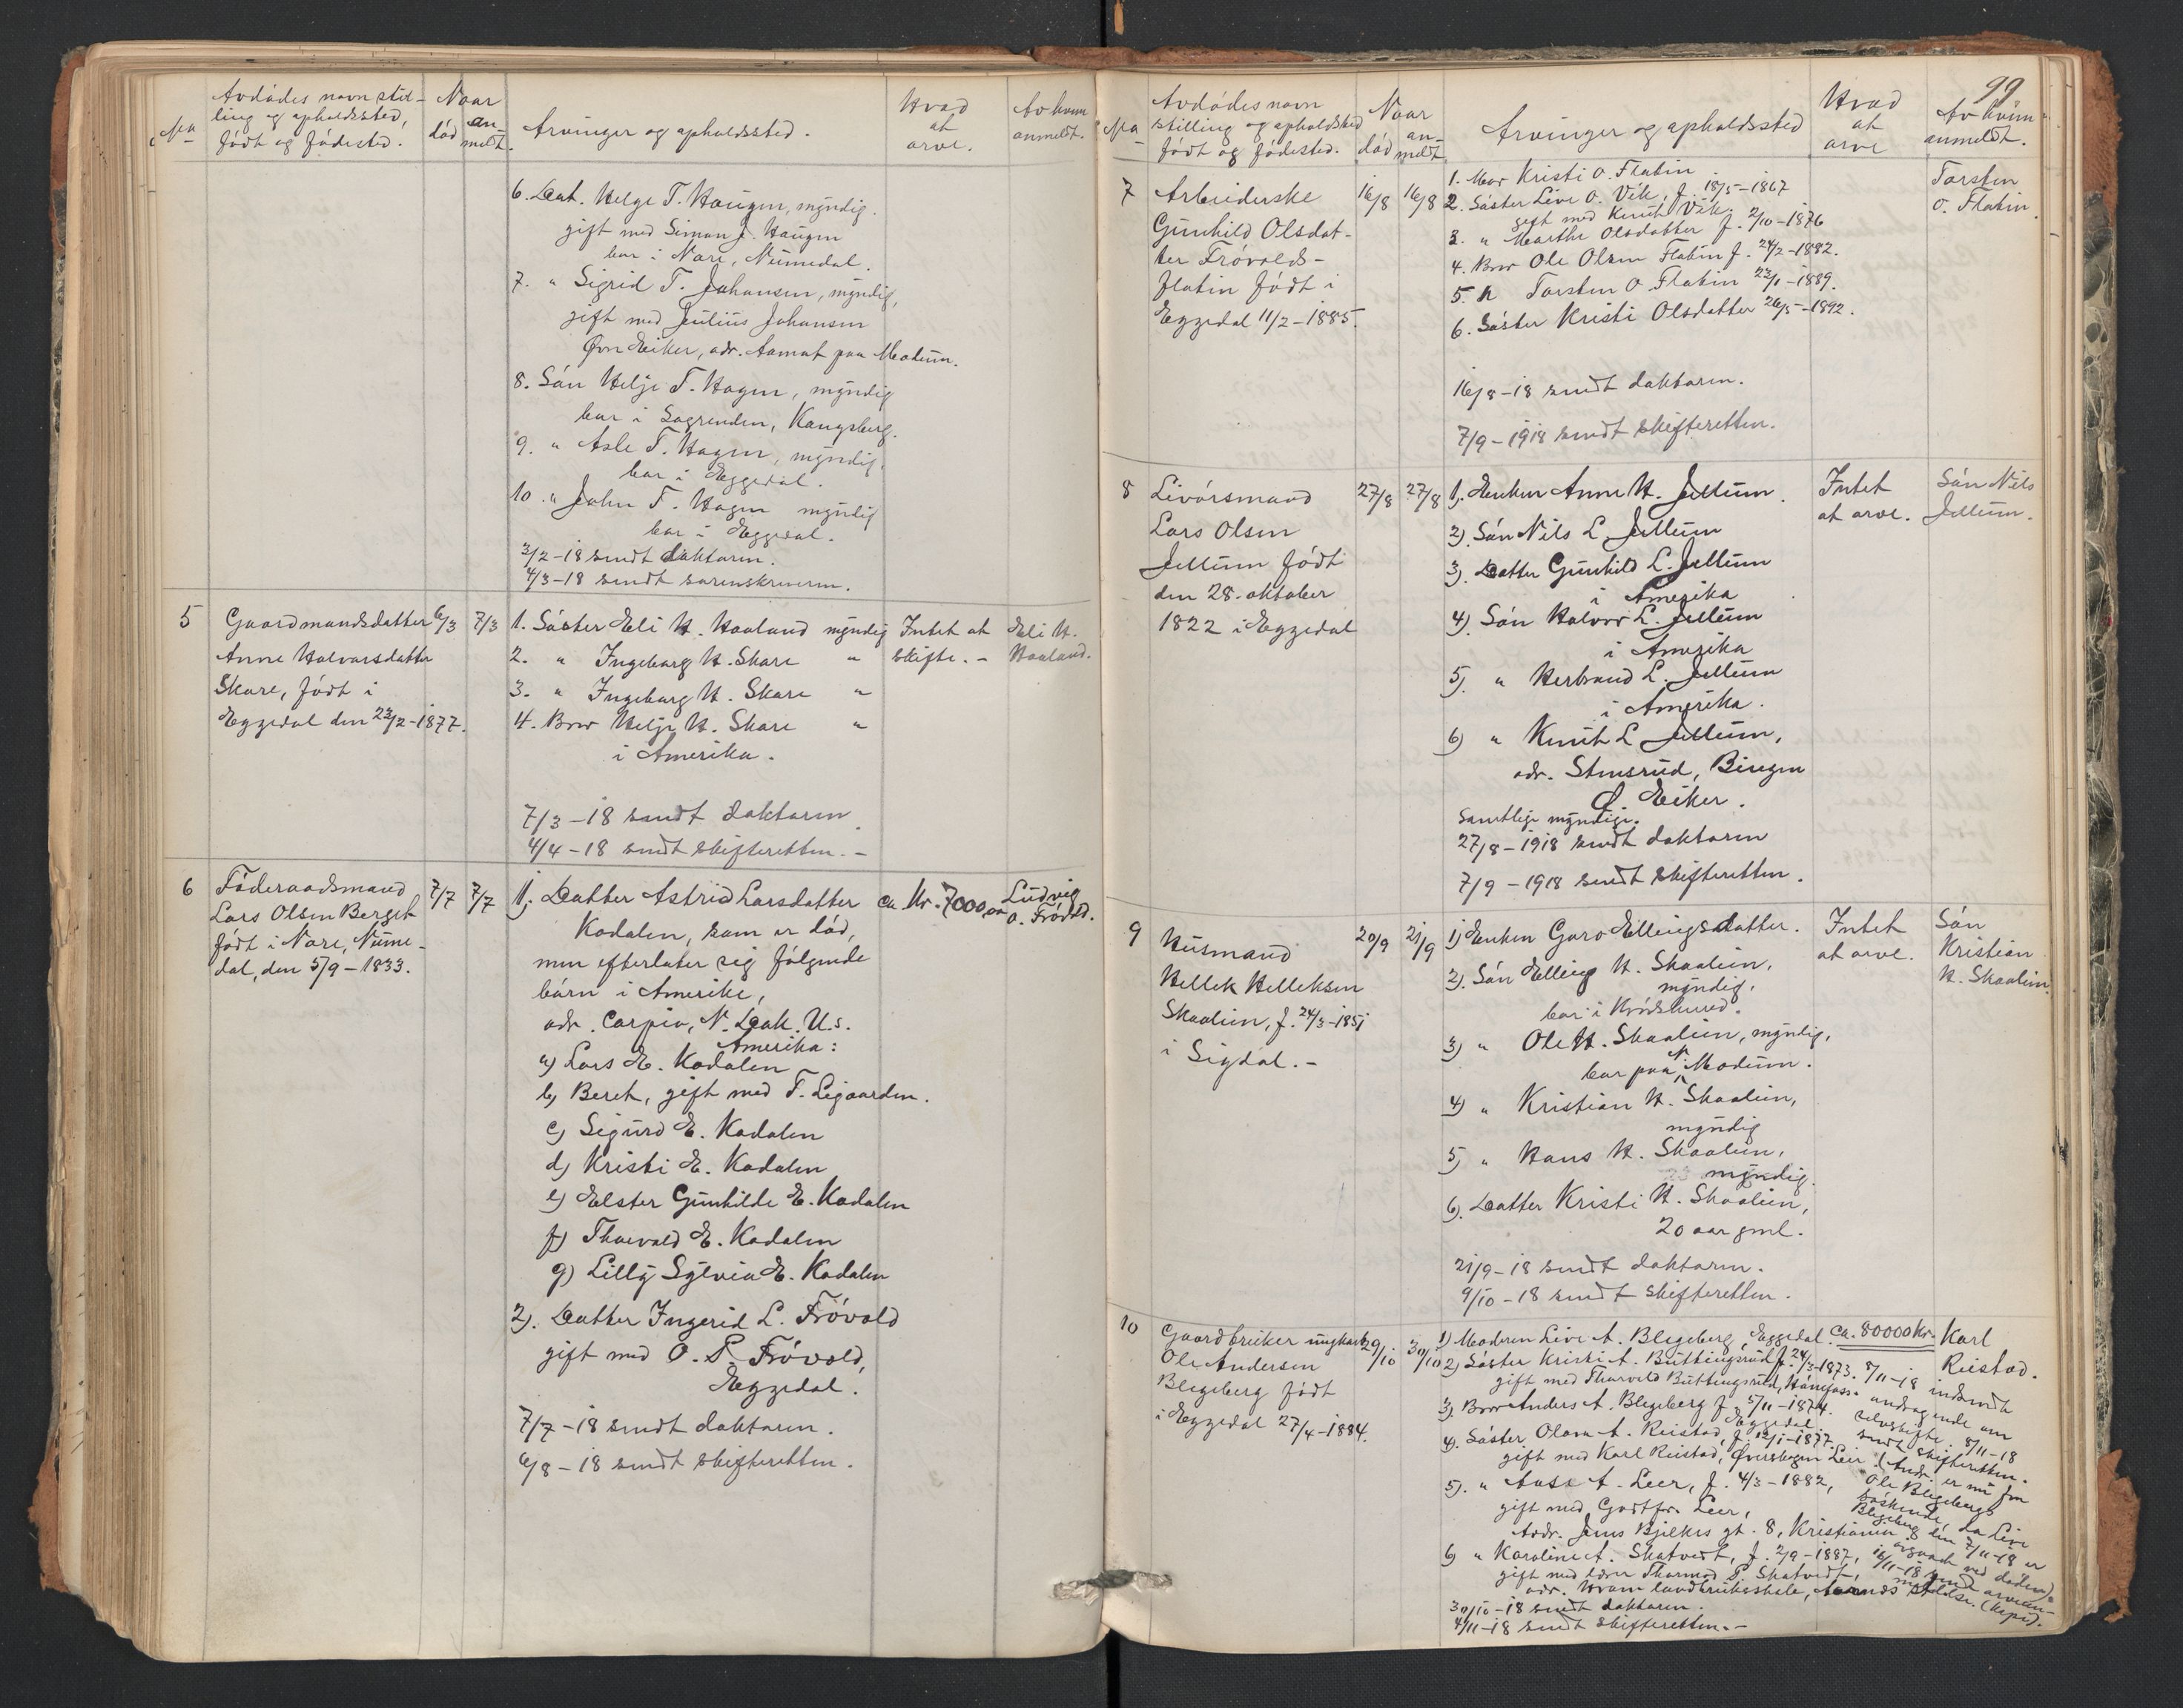 No
Avdødes navn stil-
ling og opholdssted,
født og fødested.
Naar
død
an-
meldt.
Arvinger og opholdssted.
Hvad
at
arve.
Av hvem
anmeldt.
6. Dat. Helge T. Haugen, myndig.
gift med Simon J. Haugen
bor i Nore, Numedal.
7. " Sigrid T. Johansen, myndig,
gift med Julius Johansen
Øvre Eiker, adr. Aamot paa Modum.
8. Søn Helje T. Hagen, myndig
bor i Sagrenden, Kongsberg.
9. " Asle T. Hagen, myndig,
bor i Eggedal.
10. " John T. Hagen myndig
bor i Eggedal.
3/2-18 sendt doktoren.
4/3-18 sendt sorenskriveren.
5
Gaardmandsdatter
Anne Halvorsdatter
Skare, født i
Eggedal den 23/2-1877.
6/3
7/3
1. Søster Eli H. Haaland myndig
2. " Ingeborg H. Skare "
3. " Ingeborg H. Skare "
4. Bror Helje H. Skare "
i Amerika.
7/3-18 sendt doktoren.
4/4-18 sendt skifteretten.-
Intet at
skifte.-
Eli H.
Haaland.
6
Føderaadsmand
Lars Olsen Berget
født i Nore, Nume-
dal, den 5/9-1833.
7/7
7/7
1). Datter Astrid Larsdatter
Kadalen, som er død,
men efterlater sig følgende
børn i Amerika,
adr. Carpio, N. Dak. U.S.
Amerika:
a) Lars E. Kadalen
b) Beret, gift med T. Ligaarden.
c) Sigurd E. Kadalen
d) Kristi E. Kadalen
e) Elster Gunhilde E. Kadalen
f) Thorvald E. Kadalen
g) Lilly Sylvia E. Kadalen
2). Datter Ingerid L. Frøvold
gift med O. P. Frøvold,
Eggedal.
7/7-18 sendt doktoren.
6/8-18 sendt skifteretten.
ca. Kr. 7000,00
Ludvig
O. Frøvold.
99
No
Avdødes navn
stilling og opholdssted
født og fødested.
Naar
død
an-
meldt
Arvinger og opholdssted
Hvad
at
arve
Av hvem
anmeldt.
7
Arbeiderske
Gunhild Olsdat-
ter Frøvolds-
flatin født i
Eggedal 11/2-1885.
16/8
16/8
1. Mor Kristi O. Flatin
2. Søster Live O. Vik, f. 18/5-1867
gift med Knut Vik.
3. " Marthe Olsdatter f. 2/10-1876
4. Bror Ole Olsen Flatin f. 24/2-1882.
5. " Torsten O. Flatin 23/1-1889.
6. Søster Kristi Olsdatter 26/5-1892.
16/8-18 sendt doktoren.
7/9-1918 sendt skifteretten.
Torsten
O. Flatin.
8
Livørsmand
Lars Olsen
Jellum født
den 28. oktober
1822 i Eggedal
27/8
27/8
1). Enken Anne H. Jellum.
2). Søn Nils L. Jellum
3). Datter Gunhild L. Jellum
i Amerika
4). Søn Halvor L. Jellum
i Amerika
5). " Herbrand L. Jellum
i Amerika.
6) " Knut L. Jellum,
adr. Stensrud, Bingen
Ø. Eiker.
Samtlige myndige.
27/8-1918 sendt doktoren
7/9-1918 sendt skifteretten.
Intet
at arve.
Søn Nils
Jellum.
9
Husmand
Hellek Helleksen
Skaalien, f. 24/3-1851
i Sigdal.-
20/9
21/9
1) Enken Goro Ellingsdatter.
2). Søn Elling H. Skaalien,
myndig,
bor i Krødsherad.
3) " Ole H. Skaalien, myndig,
bor paa N. Modum.
4) " Kristian H. Skaalien,
myndig
5) " Hans H. Skaalien,
myndig.
6). Datter Kristi H. Skaalien,
20 aar gml.
21/9-18 sendt doktoren.
9/10-18 sendt skifteretten.
Intet
at arve.
Søn
Kristian
H. Skaalien.
10
Gaardbruker ungkarl
Ole Andersen
Blegeberg født
i Eggedal 27/4-1884.
29/10
30/10
1) Moderen Live A. Blegeberg, Eggedal.
2) Søster Kristi A. Buttingsrud f. 24/3-1873.
gift med Thorvald Buttingsrud, Hønefoss.
3). Bror Anders A. Blegeberg f. 5/11-1874.
Eggedal.
4). Søster Olava A. Ruistad, f. 12/1-1877.
gift med Karl Ruistad, Øverskogen Lier.
5). " Aase A. Leer, f. 4/3-1882,
gift med Godtfr. Leer,
Addr. Jens Bjelkes gt. 8, Kristiania.
6) " Karoline A. Skatvedt, f. 2/9-1887,
gift med lærer Thormod P. Skatvedt,
adr. Hvam landbruksskole, Aarnes
30/10-18 sendt doktoren.
4/11-18 sendt skifteretten.-
ca. 80000 kr.
8/11-18 indsendt
andragende om
selvskifte. 8/11-18
sendt skifteretten.
(Andr. er nu fra
Ole Blegebergs
søskende, da Live
Blegeberg den 7/11-18 er
avgaat ved døden).
16/11-18 sendt arvean-
meldelse. (kopi).
Karl
Ruistad.